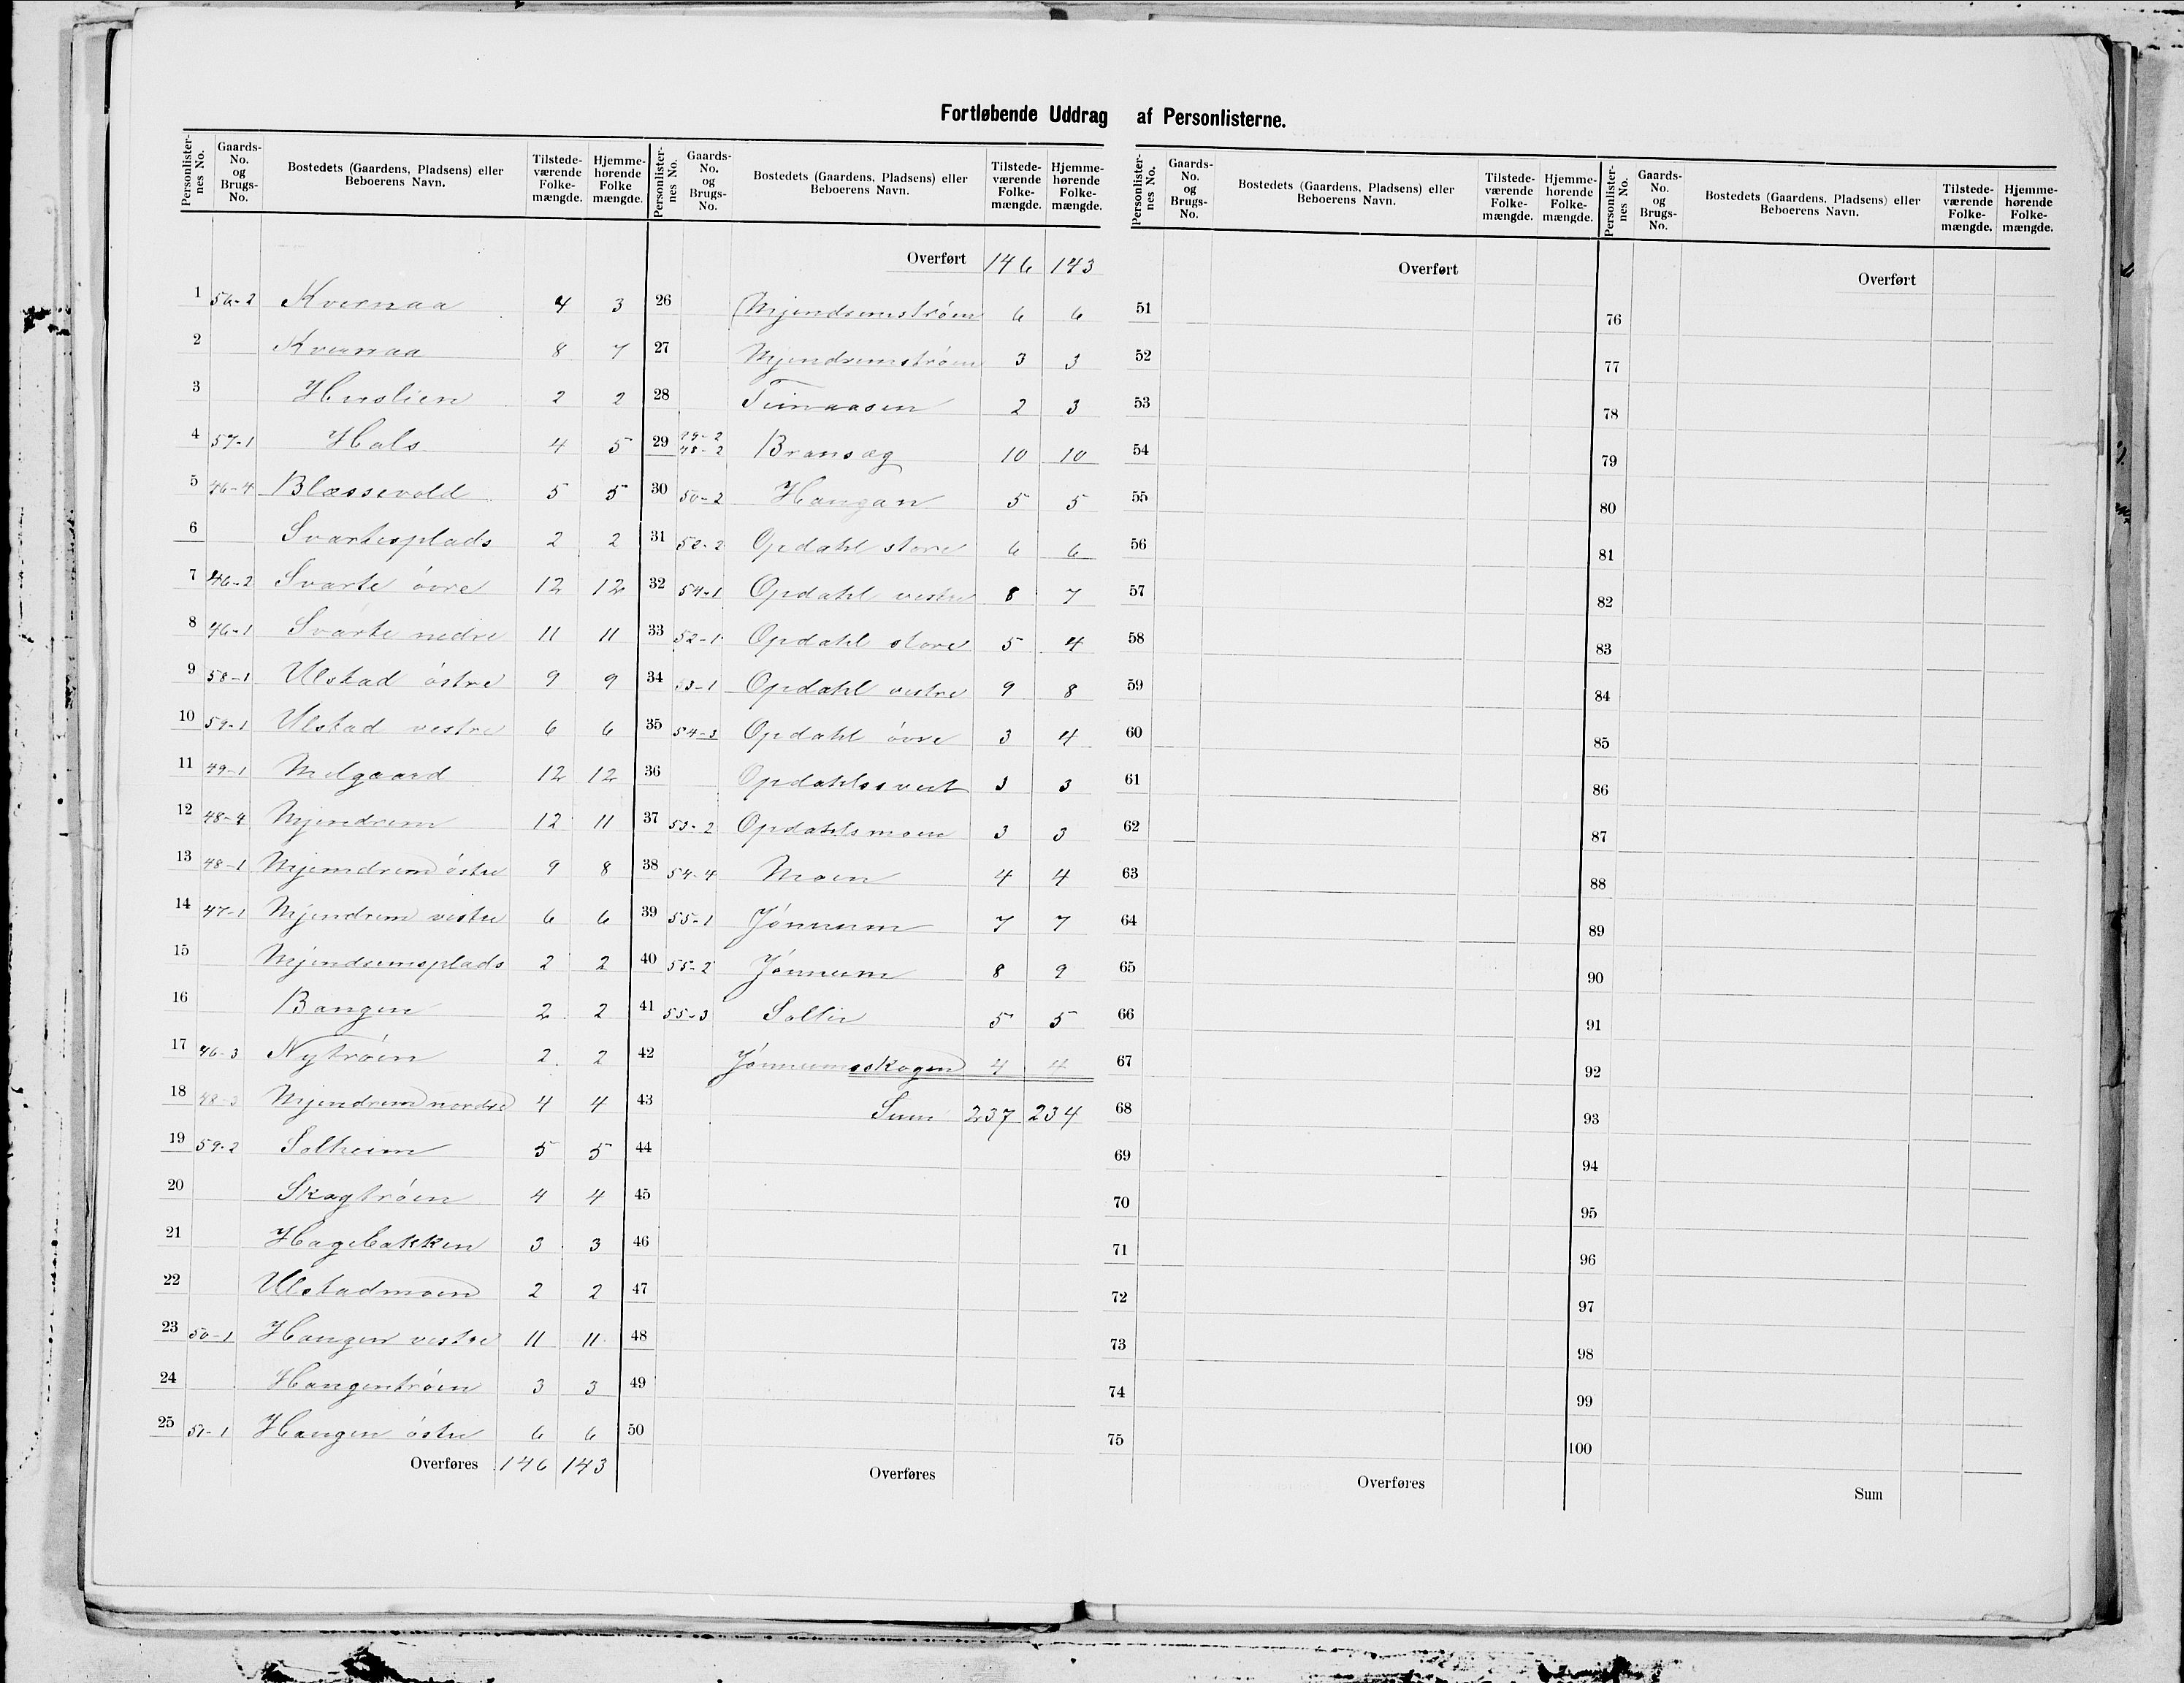 Fortløbende Uddrag af Personlisterne.
Personlisternes No. Gaards-No. og Brugs-No. Bostedets (Gaardens, Pladsens) eller Beboerens Navn. Tilstedeværende Folkemængde. Hjemmehørende Folkemængde.
1 56-2 Kvernaa 4 3
2 Kvernaa 8 7
3 Huslien 2 2
4 57-1 Hals 4 5
5 46-4 Blæssevold 5 5
6 Svartesplads 2 2
7 46-2 Svarte övre 12 12
8 46-1 Svarte nedre 11 11
9 58-1 Ulstad östre 9 9
10 59-1 Ulstad vestre 6 6
11 49-1 Melgaard 12 12
12 48-4 Mjendrem 12 11
13 48-1 Mjendrem östre 9 8
14 47-1 Mjendrem vestre 6 6
15 Mjendremsplads 2 2
16 Bangen 2 2
17 46-3 Nytröen 2 2
18 48-3 Mjendrem nordre 4 4
19 59-2 Solheim 5 5
20 Skogtröen 4 4
21 Hagebakken 3 3
22 Ulstadmoen 2 2
23 50-1 Haugen vestre 11 11
24 Haugentröen 3 3
25 51-1 Haugen östre 6 6
Overføres 146 143
Personlisternes No. Gaards-No. og Brugs-No. Bostedets (Gaardens, Pladsens) eller Beboerens Navn. Tilstedeværende Folkemængde. Hjemmehørende Folkemængde.
Overført 146 143
26 Mjendremströen 6 6
27 Mjendremströen 3 3
28 2 3
29 49-2 48-2 10 10
30 50-2 Haugan 5 5
31 52-2 Opdahl store 6 6
32 54-1 Opdahl vestre 8 7
33 52-1 Opdahl store 5 4
34 53-1 Opdahl vestre 9 8
35 54-3 Opdahl övre 3 4
36 3 3
37 53-2 Opdahlsmoen 3 3
38 54-4 Moen 4 4
39 55-1 Jönnum 7 7
40 55-2 Jönnum 8 9
41 55-3 Sollie 5 5
42 Jönnumsskogen 4 4
43 Sum 237 234
44
45
46
47
48
49
50
Overføres
Personlisternes No. Gaards-No. og Brugs-No. Bostedets (Gaardens, Pladsens) eller Beboerens Navn. Tilstedeværende Folkemængde. Hjemmehørende Folkemængde.
Overført
51
52
53
54
55
56
57
58
59
60
61
62
63
64
65
66
67
68
69
70
71
72
73
74
75
Overføres
Personlisternes No. Gaards-No. og Brugs-No. Bostedets (Gaardens, Pladsens) eller Beboerens Navn. Tilstedeværende Folkemængde. Hjemmehørende Folkemængde.
Overført
76
77
78
79
80
81
82
83
84
85
86
87
88
89
90
91
92
93
94
95
96
97
98
99
100
Sum